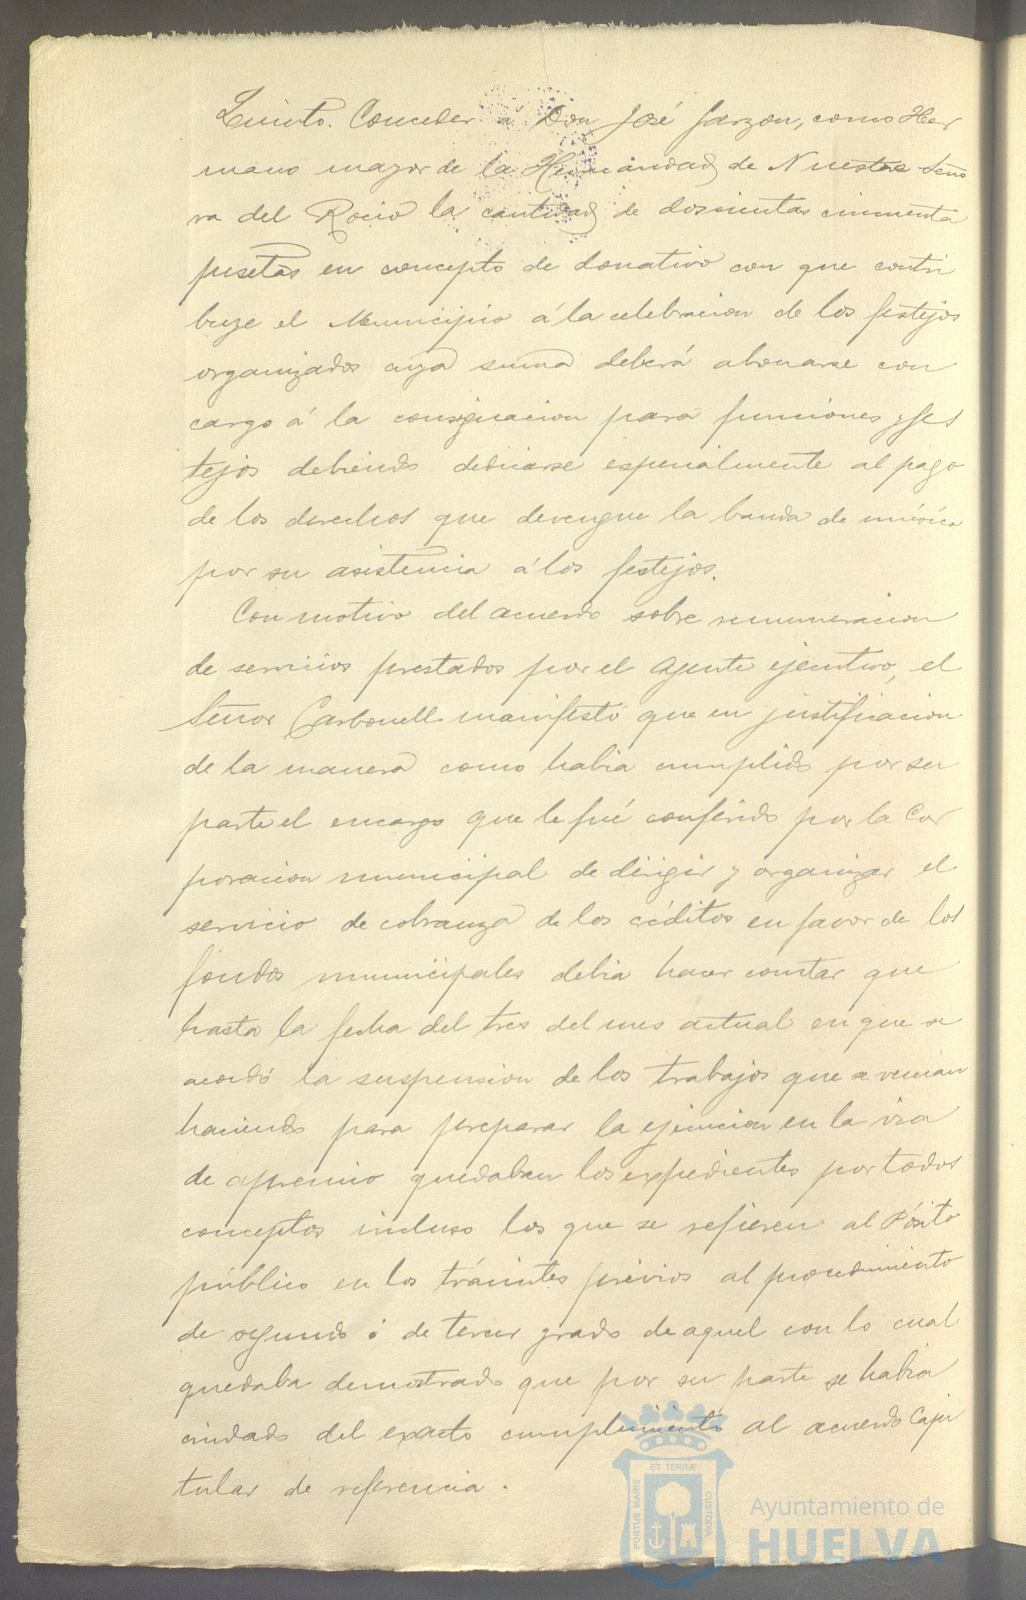 Quinto. Conceder á Don José Garzon, como Her
mano mayor de la Hermandad de Nuestra Seño
ra del Rocio la cantidad de doscientas cincuenta
pesetas en concepto de donativo con que contri
buye el Municipio á la celebracion de los festejos
organizados cuya suma deberá abonarse con
cargo á la consignacion para funciones y fes
tejos debiendo dedicarse especialmente al pago
de los derechos que devengue la banda de música
por su asistencia á los festejos.
Con motivo del acuerdo sobre remuneracion
de servicios prestados por el Agente ejecutivo, el
Señor Carbonell manifestó que en justificacion
de la manera como habia cumplido por su
parte el encargo que le fué conferido por la Cor
poracion municipal de dirigir y organizar el
servicio de cobranza de los créditos en favor de los
fondos municipales debia hacer constar que
hasta la fecha del tres del mes actual en que se
acordó la suspension de los trabajos que se venian
haciendo para preparar la ejecucion en la via
de apremio quedaban los expedientes por todos
conceptos incluso los que se refieren al Pósito
público en los trámites prévios al procedimiento
de segundo ó de tercer grado de aquel con lo cual
quedaba demostrado que por su parte se habia
cuidado del exacto cumplimiento al acuerdo Capi
tular de referencia.
ET TERRÆ
PORTUS MARIS
CUSTODIA
Ayuntamiento de
HUELVA